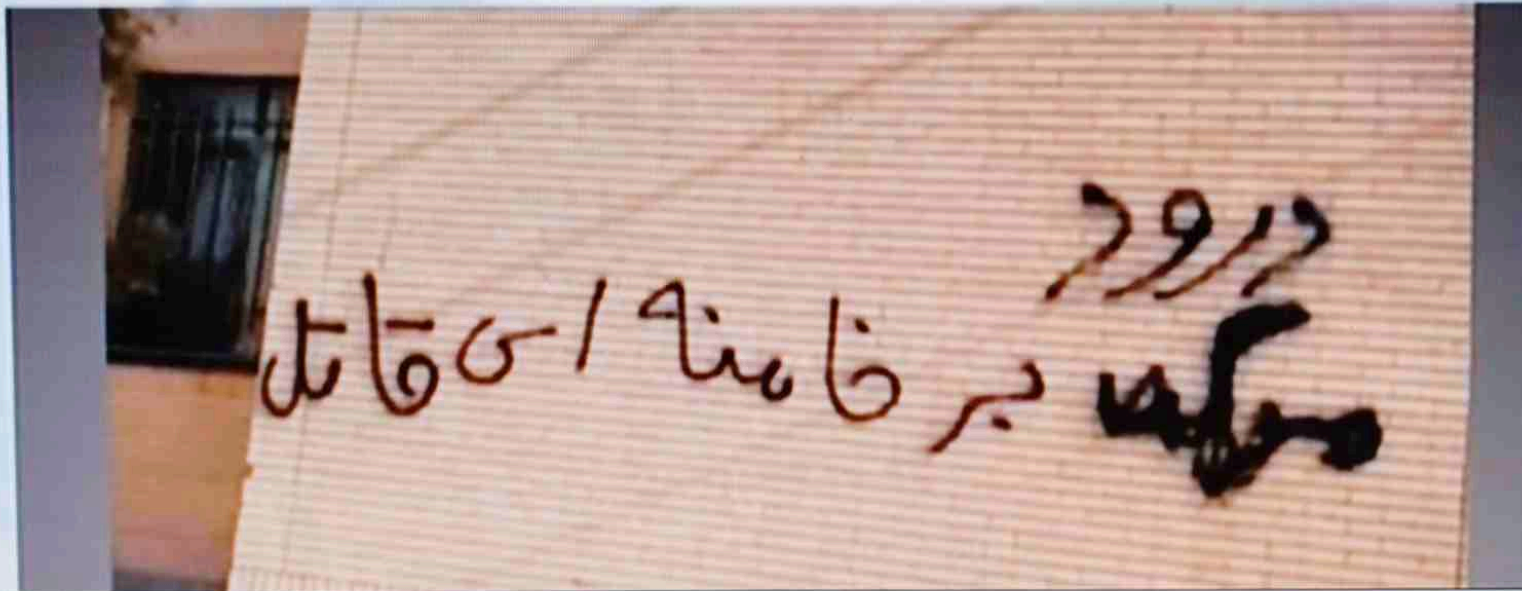 درود
مرگ بر خامنه ای قاتل